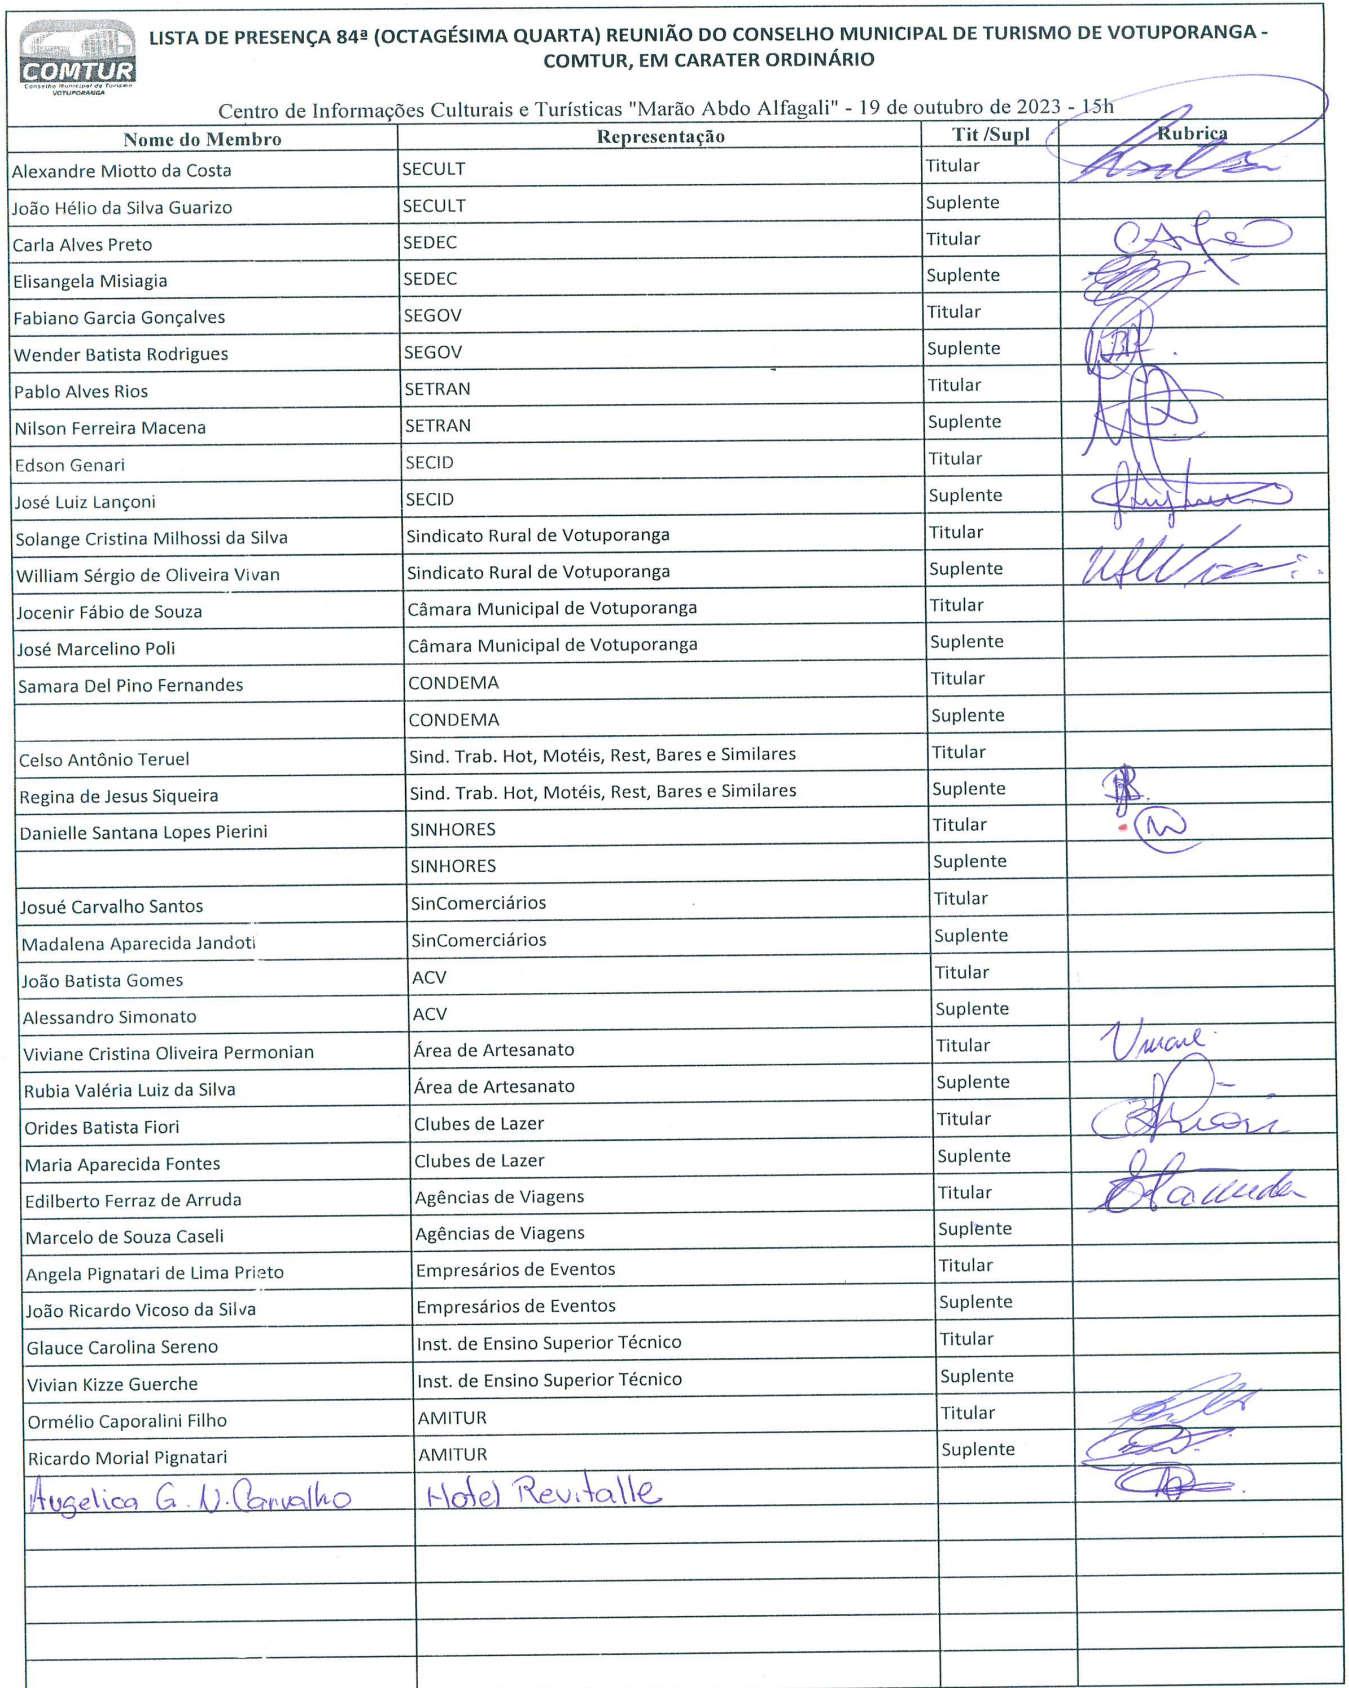 COMTUR
Conselho Municipal de Turismo
VOTUPORANGA
LISTA DE PRESENÇA 84ª (OCTAGÉSIMA QUARTA) REUNIÃO DO CONSELHO MUNICIPAL DE TURISMO DE VOTUPORANGA -
COMTUR, EM CARATER ORDINÁRIO
Centro de Informações Culturais e Turísticas "Marão Abdo Alfagali" - 19 de outubro de 2023 - 15h
Nome do Membro Representação Tit /Supl Rubrica
Alexandre Miotto da Costa SECULT Titular
João Hélio da Silva Guarizo SECULT Suplente
Carla Alves Preto SEDEC Titular
Elisangela Misiagia SEDEC Suplente
Fabiano Garcia Gonçalves SEGOV Titular
Wender Batista Rodrigues SEGOV Suplente
Pablo Alves Rios SETRAN Titular
Nilson Ferreira Macena SETRAN Suplente
Edson Genari SECID Titular
José Luiz Lançoni SECID Suplente
Solange Cristina Milhossi da Silva Sindicato Rural de Votuporanga Titular
William Sérgio de Oliveira Vivan Sindicato Rural de Votuporanga Suplente
Jocenir Fábio de Souza Câmara Municipal de Votuporanga Titular
José Marcelino Poli Câmara Municipal de Votuporanga Suplente
Samara Del Pino Fernandes CONDEMA Titular
CONDEMA Suplente
Celso Antônio Teruel Sind. Trab. Hot, Motéis, Rest, Bares e Similares Titular
Regina de Jesus Siqueira Sind. Trab. Hot, Motéis, Rest, Bares e Similares Suplente
Danielle Santana Lopes Pierini SINHORES Titular
SINHORES Suplente
Josué Carvalho Santos SinComerciários Titular
Madalena Aparecida Jandoti SinComerciários Suplente
João Batista Gomes ACV Titular
Alessandro Simonato ACV Suplente
Viviane Cristina Oliveira Permonian Área de Artesanato Titular
Rubia Valéria Luiz da Silva Área de Artesanato Suplente
Orides Batista Fiori Clubes de Lazer Titular
Maria Aparecida Fontes Clubes de Lazer Suplente
Edilberto Ferraz de Arruda Agências de Viagens Titular
Marcelo de Souza Caseli Agências de Viagens Suplente
Angela Pignatari de Lima Prieto Empresários de Eventos Titular
João Ricardo Vicoso da Silva Empresários de Eventos Suplente
Glauce Carolina Sereno Inst. de Ensino Superior Técnico Titular
Vivian Kizze Guerche Inst. de Ensino Superior Técnico Suplente
Ormélio Caporalini Filho AMITUR Titular
Ricardo Morial Pignatari AMITUR Suplente
Angelica G. N. Carvalho Hotel Revitalle